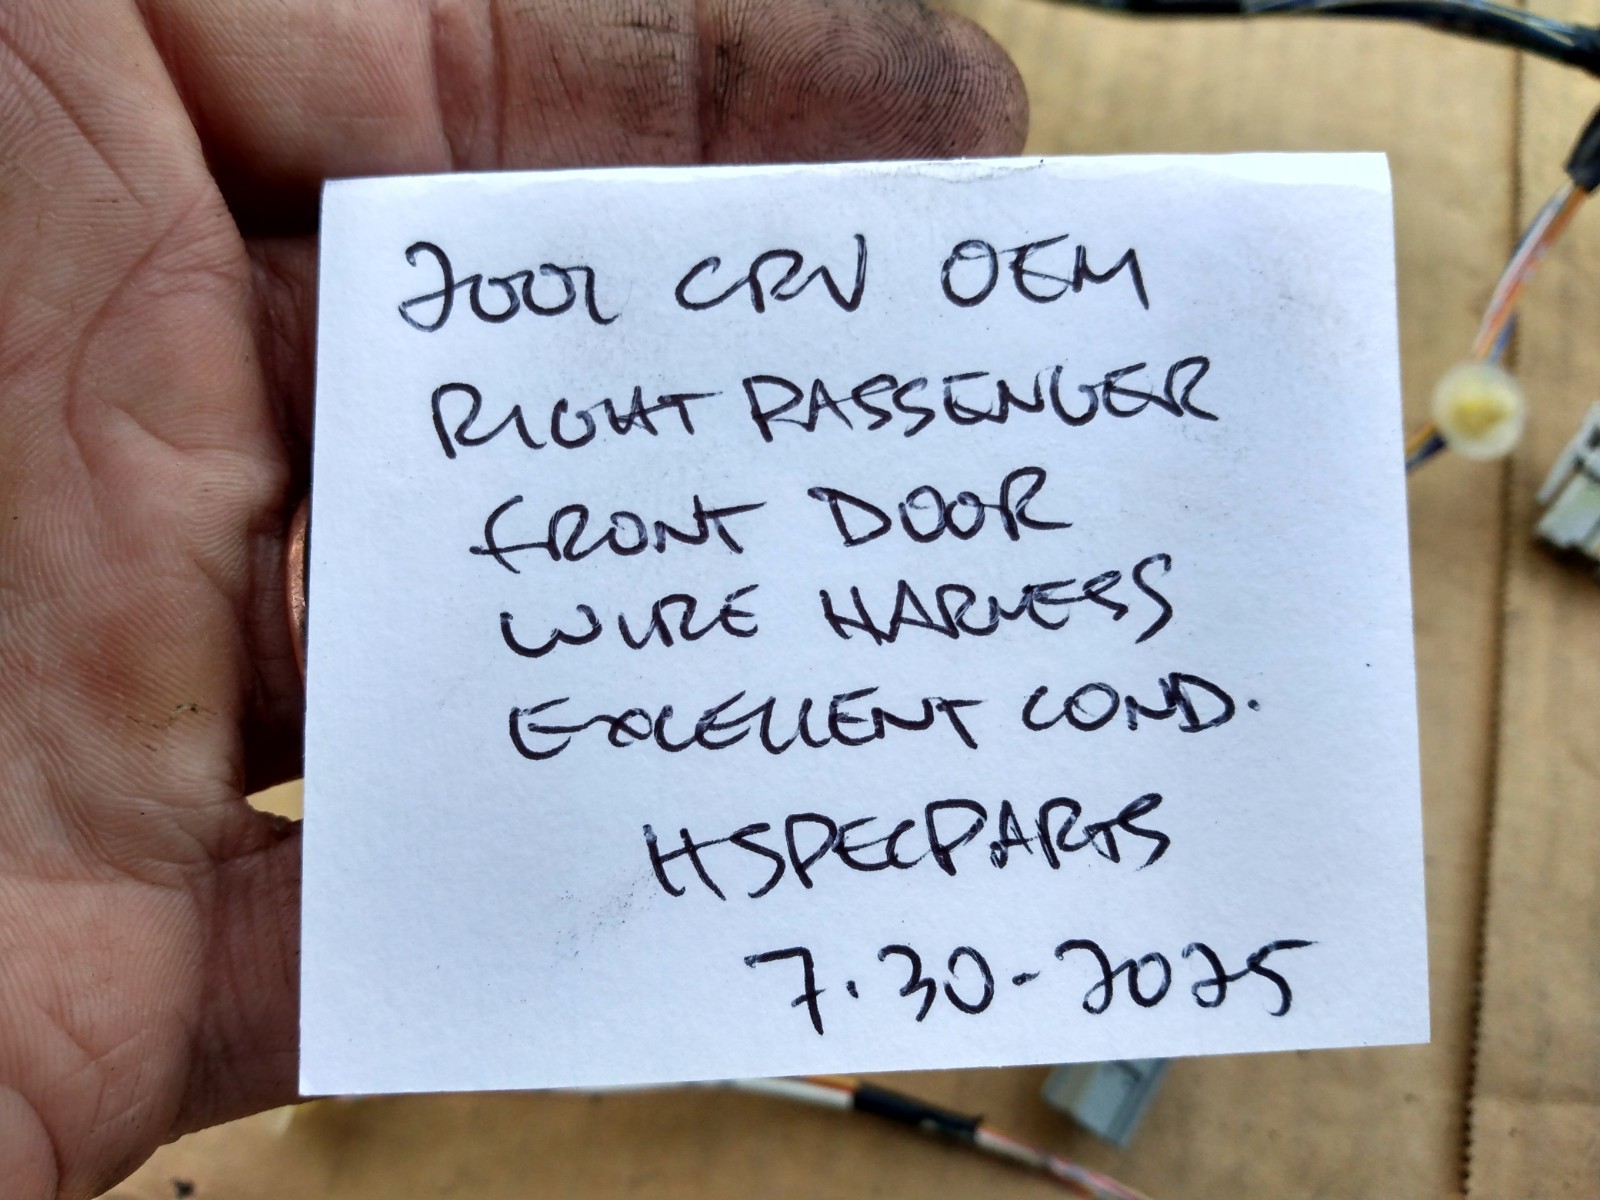 2001 CRV OEM
RIGHT PASSENGER
FRONT DOOR
WIRE HARNESS
EXCELLENT COND.
HSPECPARTS
7.30-2025